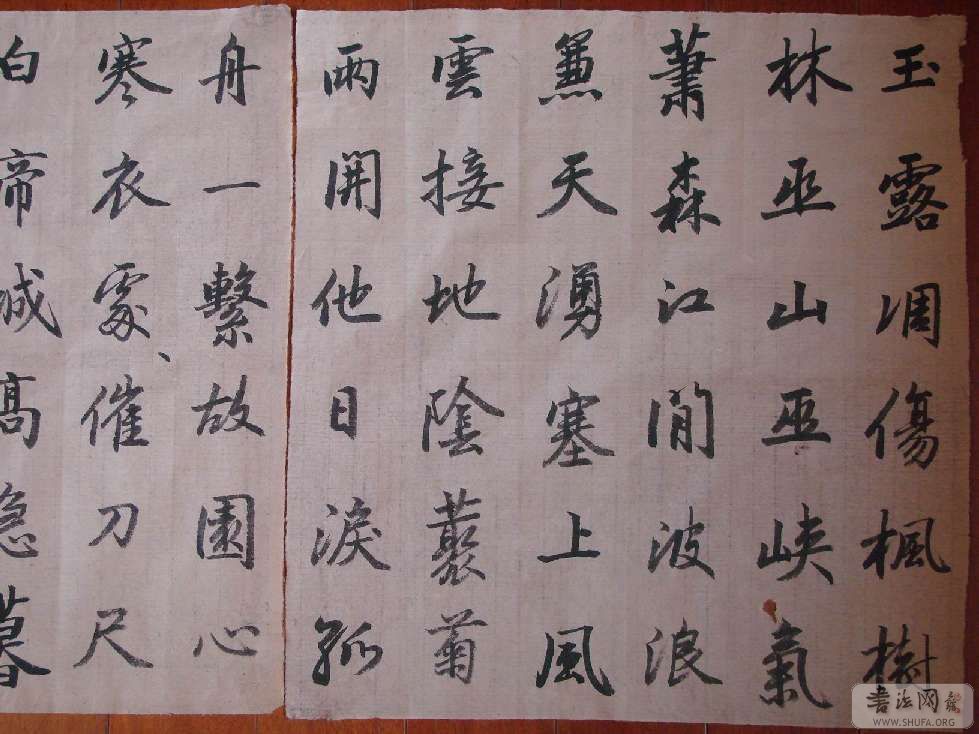 玉露凋傷楓樹
林巫山巫峽氣
蕭森江間波浪
兼天湧塞上風
雲接地陰叢菊
兩開他日淚孤
舟一繫故園心
寒衣處、催刀尺
白帝城高急暮
書法网
WWW.SHUFA.ORG